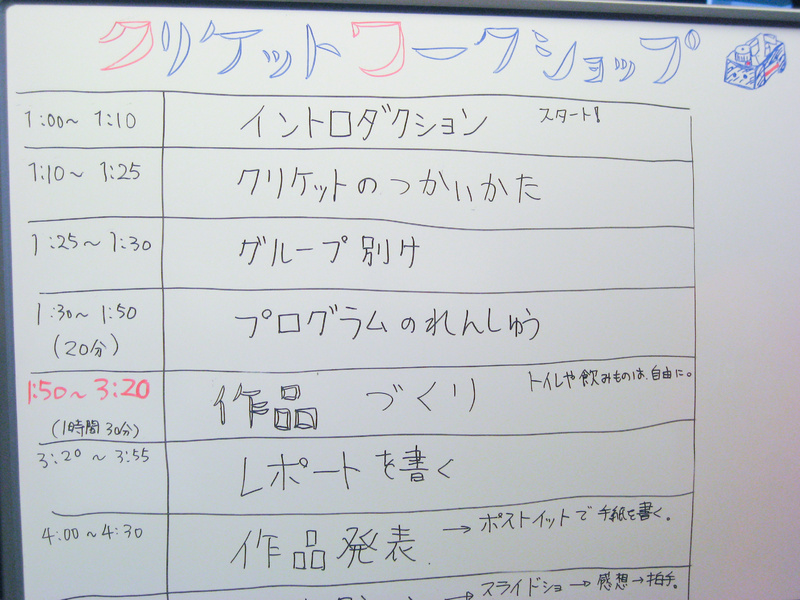 クリケットワークショップ
1:00～1:10 イントロダクション スタート!
1:10～1:25 クリケットのつかいかた
1:25～1:30 グループ別け
1:30～1:50 プログラムのれんしゅう
(20分)
1:50～3:20 作品づくり トイレや飲みものは、自由に。
(1時間30分)
3:20～3:55 レポートを書く
4:00～4:30 作品発表 →ポストイットで手紙を書く。
→スライドショー→感想→拍手。